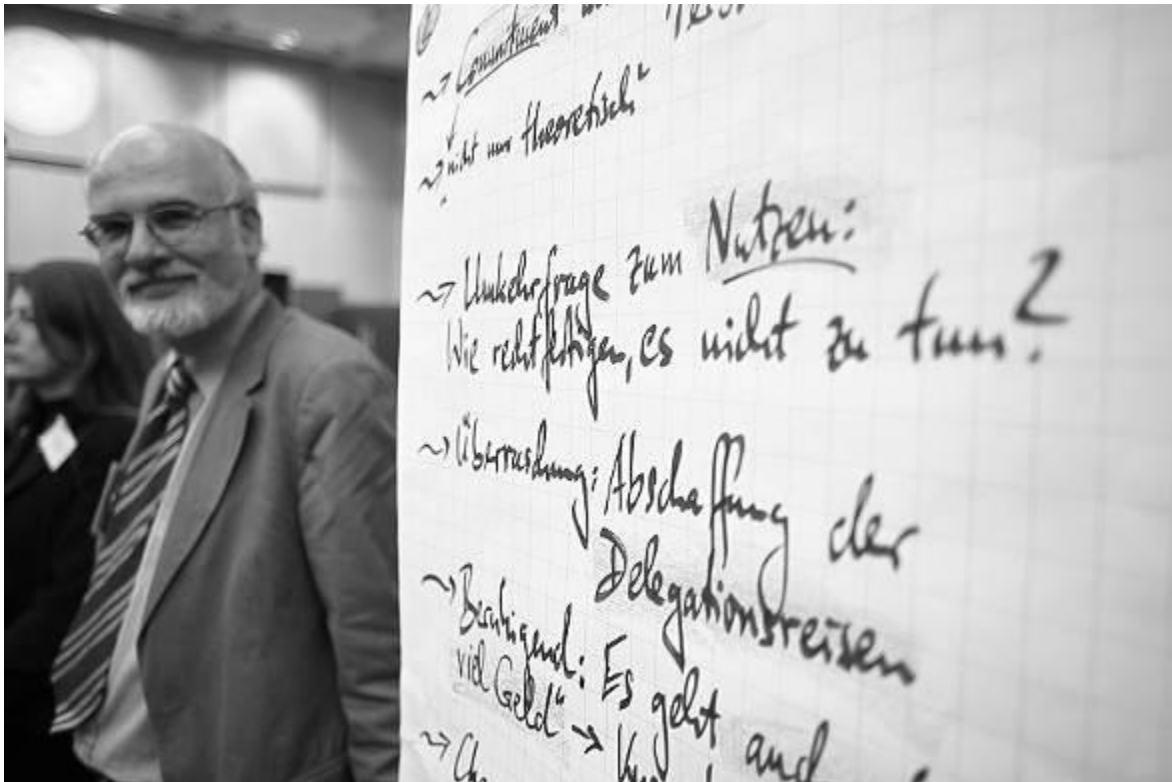 ~> Commitment
~> nicht nur theoretisch"
~> Umkehrfrage zum Nutzen:
Wie rechtfertigen, es nicht zu tun?
~> Überraschung: Abschaffung der
Delegationsreisen
~> Beruhigend: Es geht auch
viel Geld" →
~>